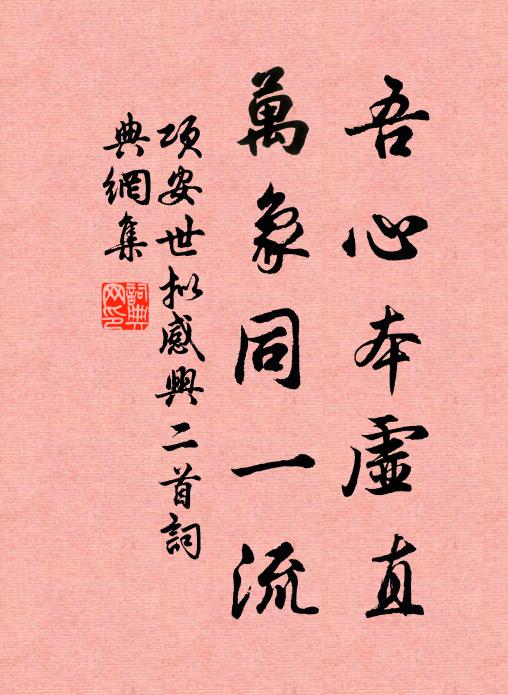 吾心本虛直
萬象同一流
項安世拟感興二首詞
典網集
詞典网印